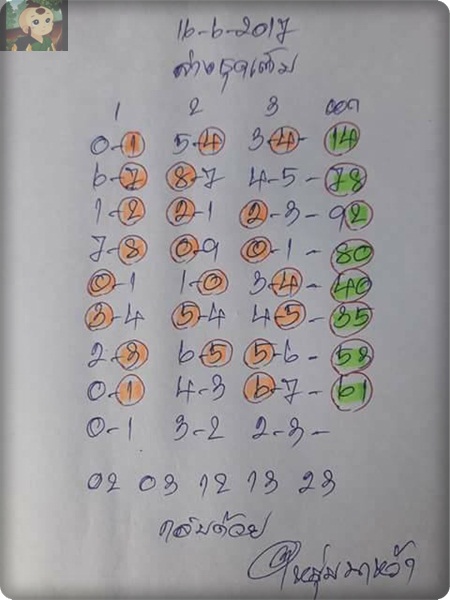 16-6-2017
ล่างชุดเต็ม
1 2 3 ออก
0-1 5-4 3-4- 14
6-7 8-7 4-5- 78
1-2 2-1 2-3- 92
7-8 0-9 0-1- 80
0-1 1-0 3-4- 40
3-4 5-4 4-5- 35
2-3 6-5 5-6- 53
0-1 4-3 6-7- 61
0-1 3-2 2-3-
02 03 12 13 23
กลับด้วย